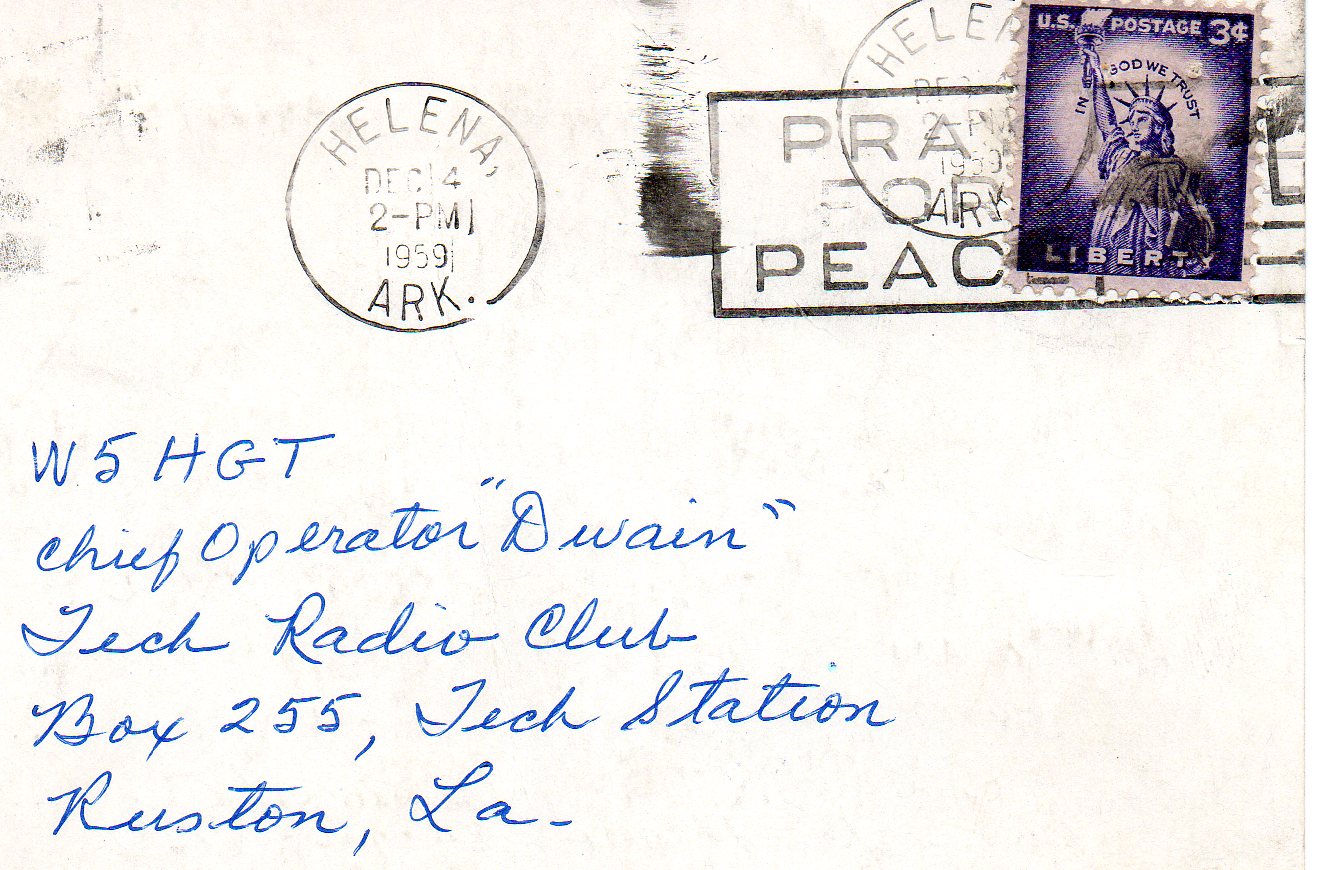 HELENA,
DEC 14
2-PM
1959
ARK.
HELE
2-PM
1959
ARK
PRA
FOR
PEACE
U.S. POSTAGE 3¢
IN GOD WE TRUST
LIBERTY
W5HGT
Chief Operator "Dwain"
Tech Radio Club
Box 255, Tech Station
Ruston, La.